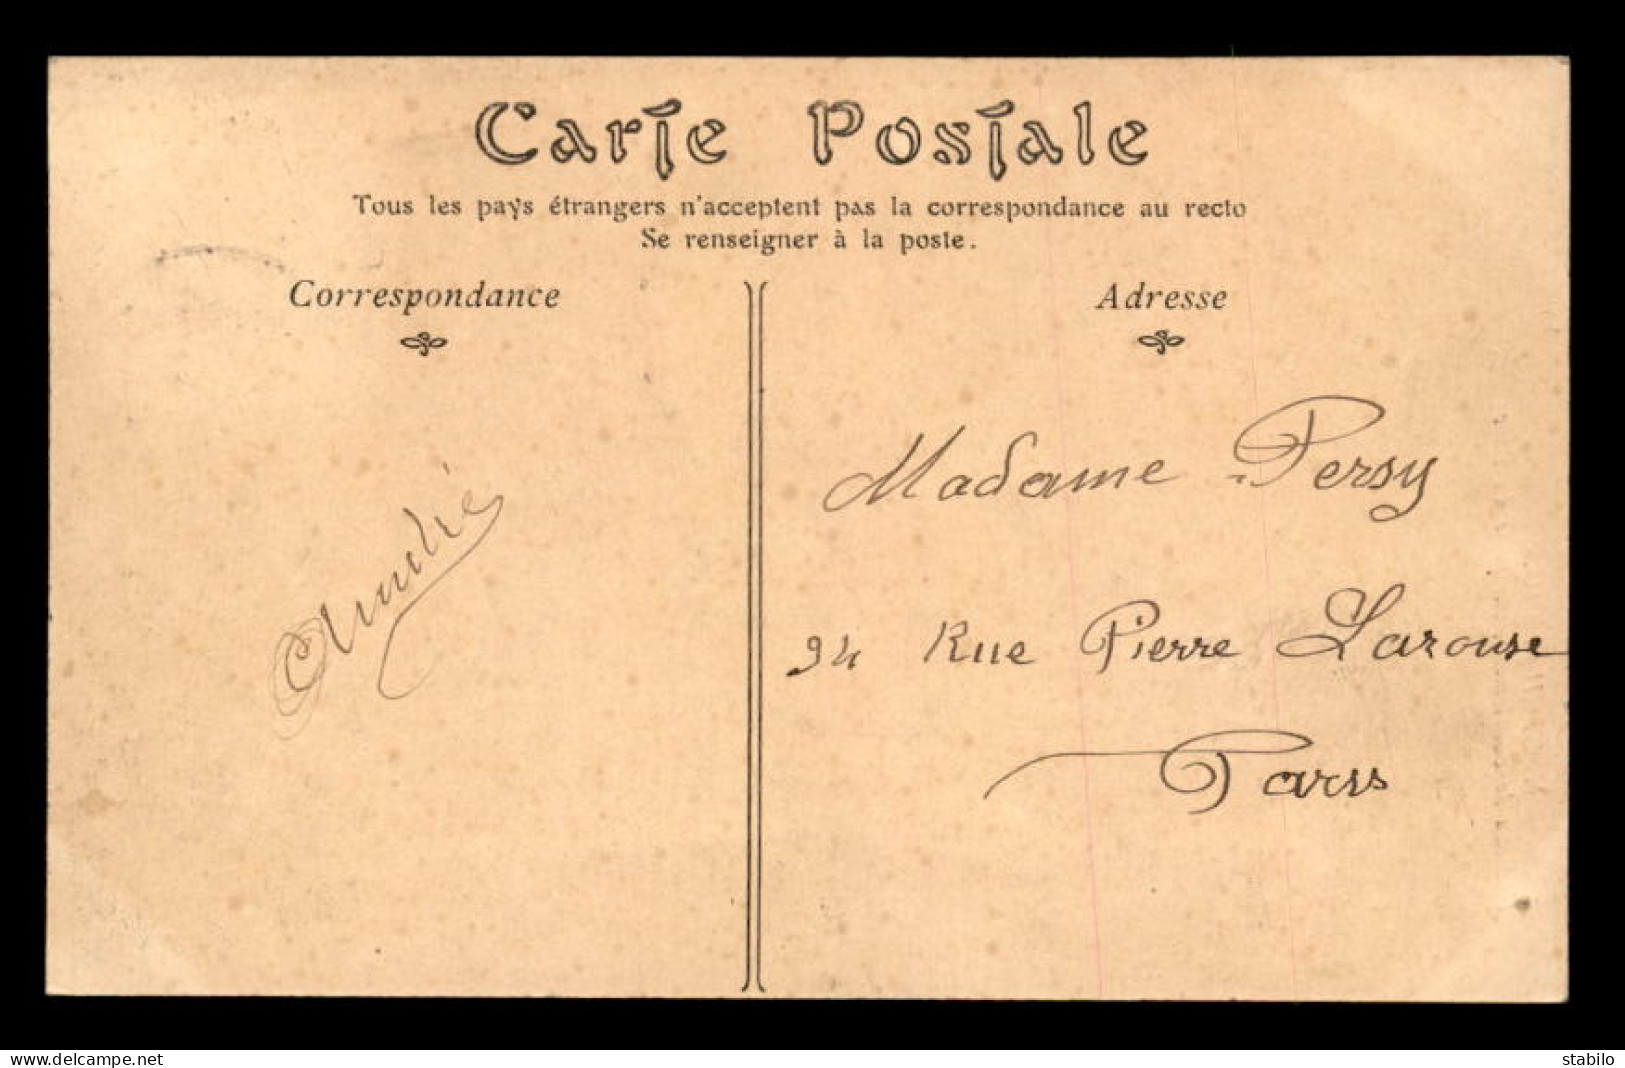 Carte Postale
Tous les pays étrangers n'acceptent pas la correspondance au recto
Se renseigner à la poste.
Correspondance
Adresse
André
Madame Persy
94 Rue Pierre Larouse
Paris
www.delcampe.net
stabilo